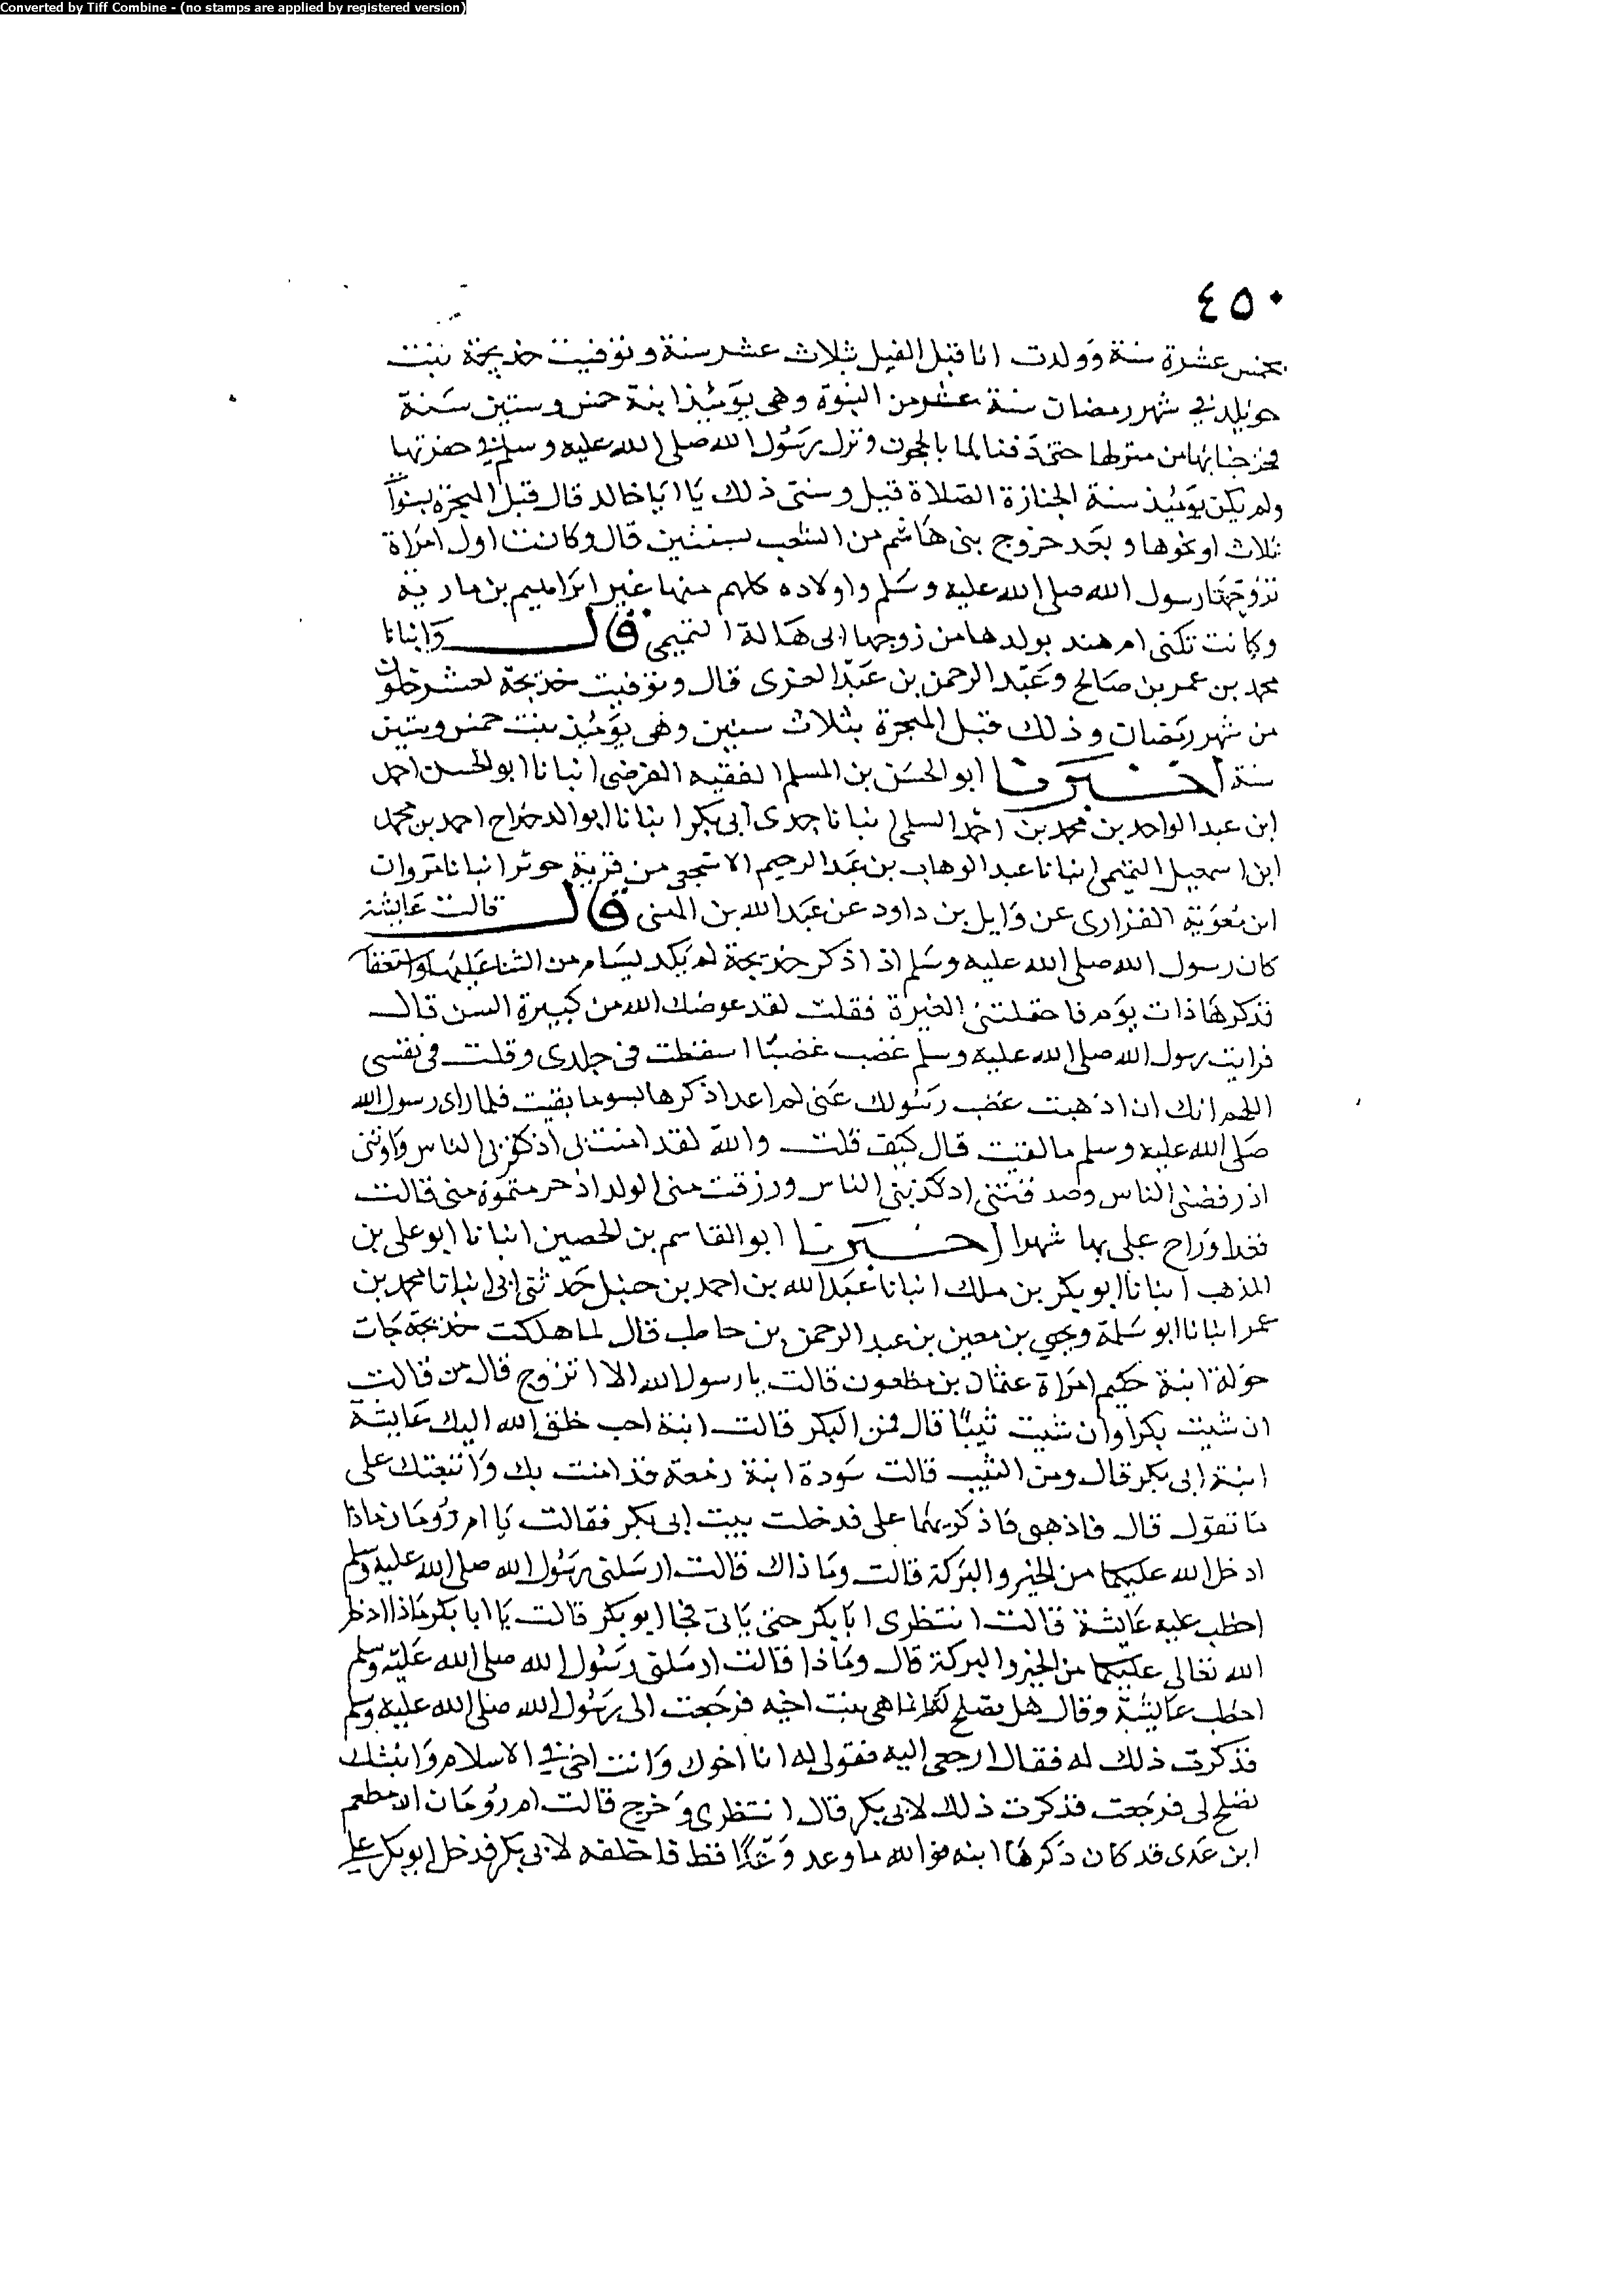 Converted by Tiff Combine - (no stamps are applied by registered version)
٤٥٠
بخمس عشرة سنة وولدت انا قبل الفيل بثلاث عشر سنة وتوفيت خديجة بنت
خويلد في شهر رمضان سنة عشر من النبوة وهي يومئذ ابنة خمس وستين سنة
فخرجنا بها من منزلها حتى دفنا لها بالحجون ونزل رسول الله صلى الله عليه وسلم في حفرتها
ولم يكن يومئذ سنة الجنازة الصلاة قيل ومتى ذلك يا ابا خالد قال قبل الهجرة بسنوات
ثلاث او نحوها وبعد خروج بني هاشم من الشعب بسنتين قال وكانت اول امراة
تزوجها رسول الله صلى الله عليه وسلم واولاده كلهم منها غير ابراهيم بن مارية
وكانت تكنى ام هند بولدها من زوجها ابي هالة التميمي قال وانبانا
محمد بن عمر بن صالح وعبد الرحمن بن عبد العزى قال وتوفيت خديجة لعشر خلون
من شهر رمضان وذلك قبل الهجرة بثلاث سنين وهي يومئذ بنت خمس وستين
سنة اخبرنا ابو الحسن بن المسلم الفقيه الفرضي انبانا ابو الحسن احمد
ابن عبد الواحد بن محمد بن احمد السلمي انبانا جدي ابي بكر انبانا ابو الدحداح احمد بن محمد
ابن اسمعيل التميمي انبانا عبد الوهاب بن عبد الرحيم الاشجعي من قرية جوبر انبانا مروان
ابن معوية الفزاري عن وايل بن داود عن عبد الله بن البهي قال قالت عايشة
كان رسول الله صلى الله عليه وسلم اذا ذكر خديجة لم يكد يسام من الثنا عليها واستغفار
فذكرها ذات يوم فاحتملتني الغيرة فقلت لقد عوضك الله من كبيرة السن قال
فرايت رسول الله صلى الله عليه وسلم غضب غضبا اسقطت في جلدي وقلت في نفسي
اللهم انك ان اذهبت غضب رسولك عني لم اعد اذكرها بسو ما بقيت فلما راى رسول الله
صلى الله عليه وسلم ما لقيت قال كيف قلت والله لقد امنت بي اذ كفر بي الناس واوتني
اذ رفضني الناس وصدقتني اذ كذبني الناس ورزقت مني الولد اذ حرمتموه مني قالت
فغدا وراح علي بها شهرا اخبرنا ابو القاسم بن الحصين انبانا ابو علي بن
المذهب انبانا ابو بكر بن ملك انبانا عبد الله بن احمد بن حنبل حدثني ابي انبانا محمد بن
عمر انبانا ابو سلمة ويحيى بن معين بن عبد الرحمن بن حاطب قال لما هلكت خديجة جات
خولة ابنة حكيم امراة عثمان بن مظعون قالت يا رسول الله الا تزوج قال من قالت
ان شيت بكرا وان شيت ثيبا قال فمن البكر قالت ابنة احب خلق الله اليك عايشة
ابنة ابي بكر قال ومن الثيب قالت سودة ابنة زمعة قد امنت بك واتبعتك على
ما تقول قال فاذهبي فاذكريهما علي فدخلت بيت ابي بكر فقالت يا ام رومان ماذا
ادخل الله عليكما من الخير والبركة قالت وما ذاك قالت ارسلني رسول الله صلى الله عليه وسلم
اخطب عليه عايشة قالت انتظري ابا بكر حتى ياتي فجا ابو بكر قالت يا ابا بكر ماذا ادخل
الله تعالى عليكما من الخير والبركة قال وماذا قالت ارسلني رسول الله صلى الله عليه وسلم
اخطب عايشة وقال هل تصلح له انما هي بنت اخيه فرجعت الى رسول الله صلى الله عليه وسلم
فذكرت ذلك له فقال ارجعي اليه فقولي له انا اخوك وانت اخي في الاسلام وابنتك
تصلح لي فرجعت فذكرت ذلك لابي بكر قال انتظري وخرج قالت ام رومان ان مطعم
ابن عدي قد كان ذكرها ابنه فوالله ما وعد وعدا قط فاخلفه لابي بكر فدخل ابو بكر على